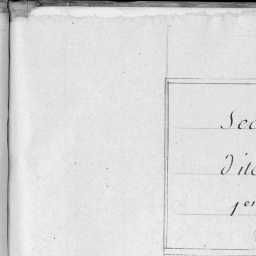 Sec
dite
1er